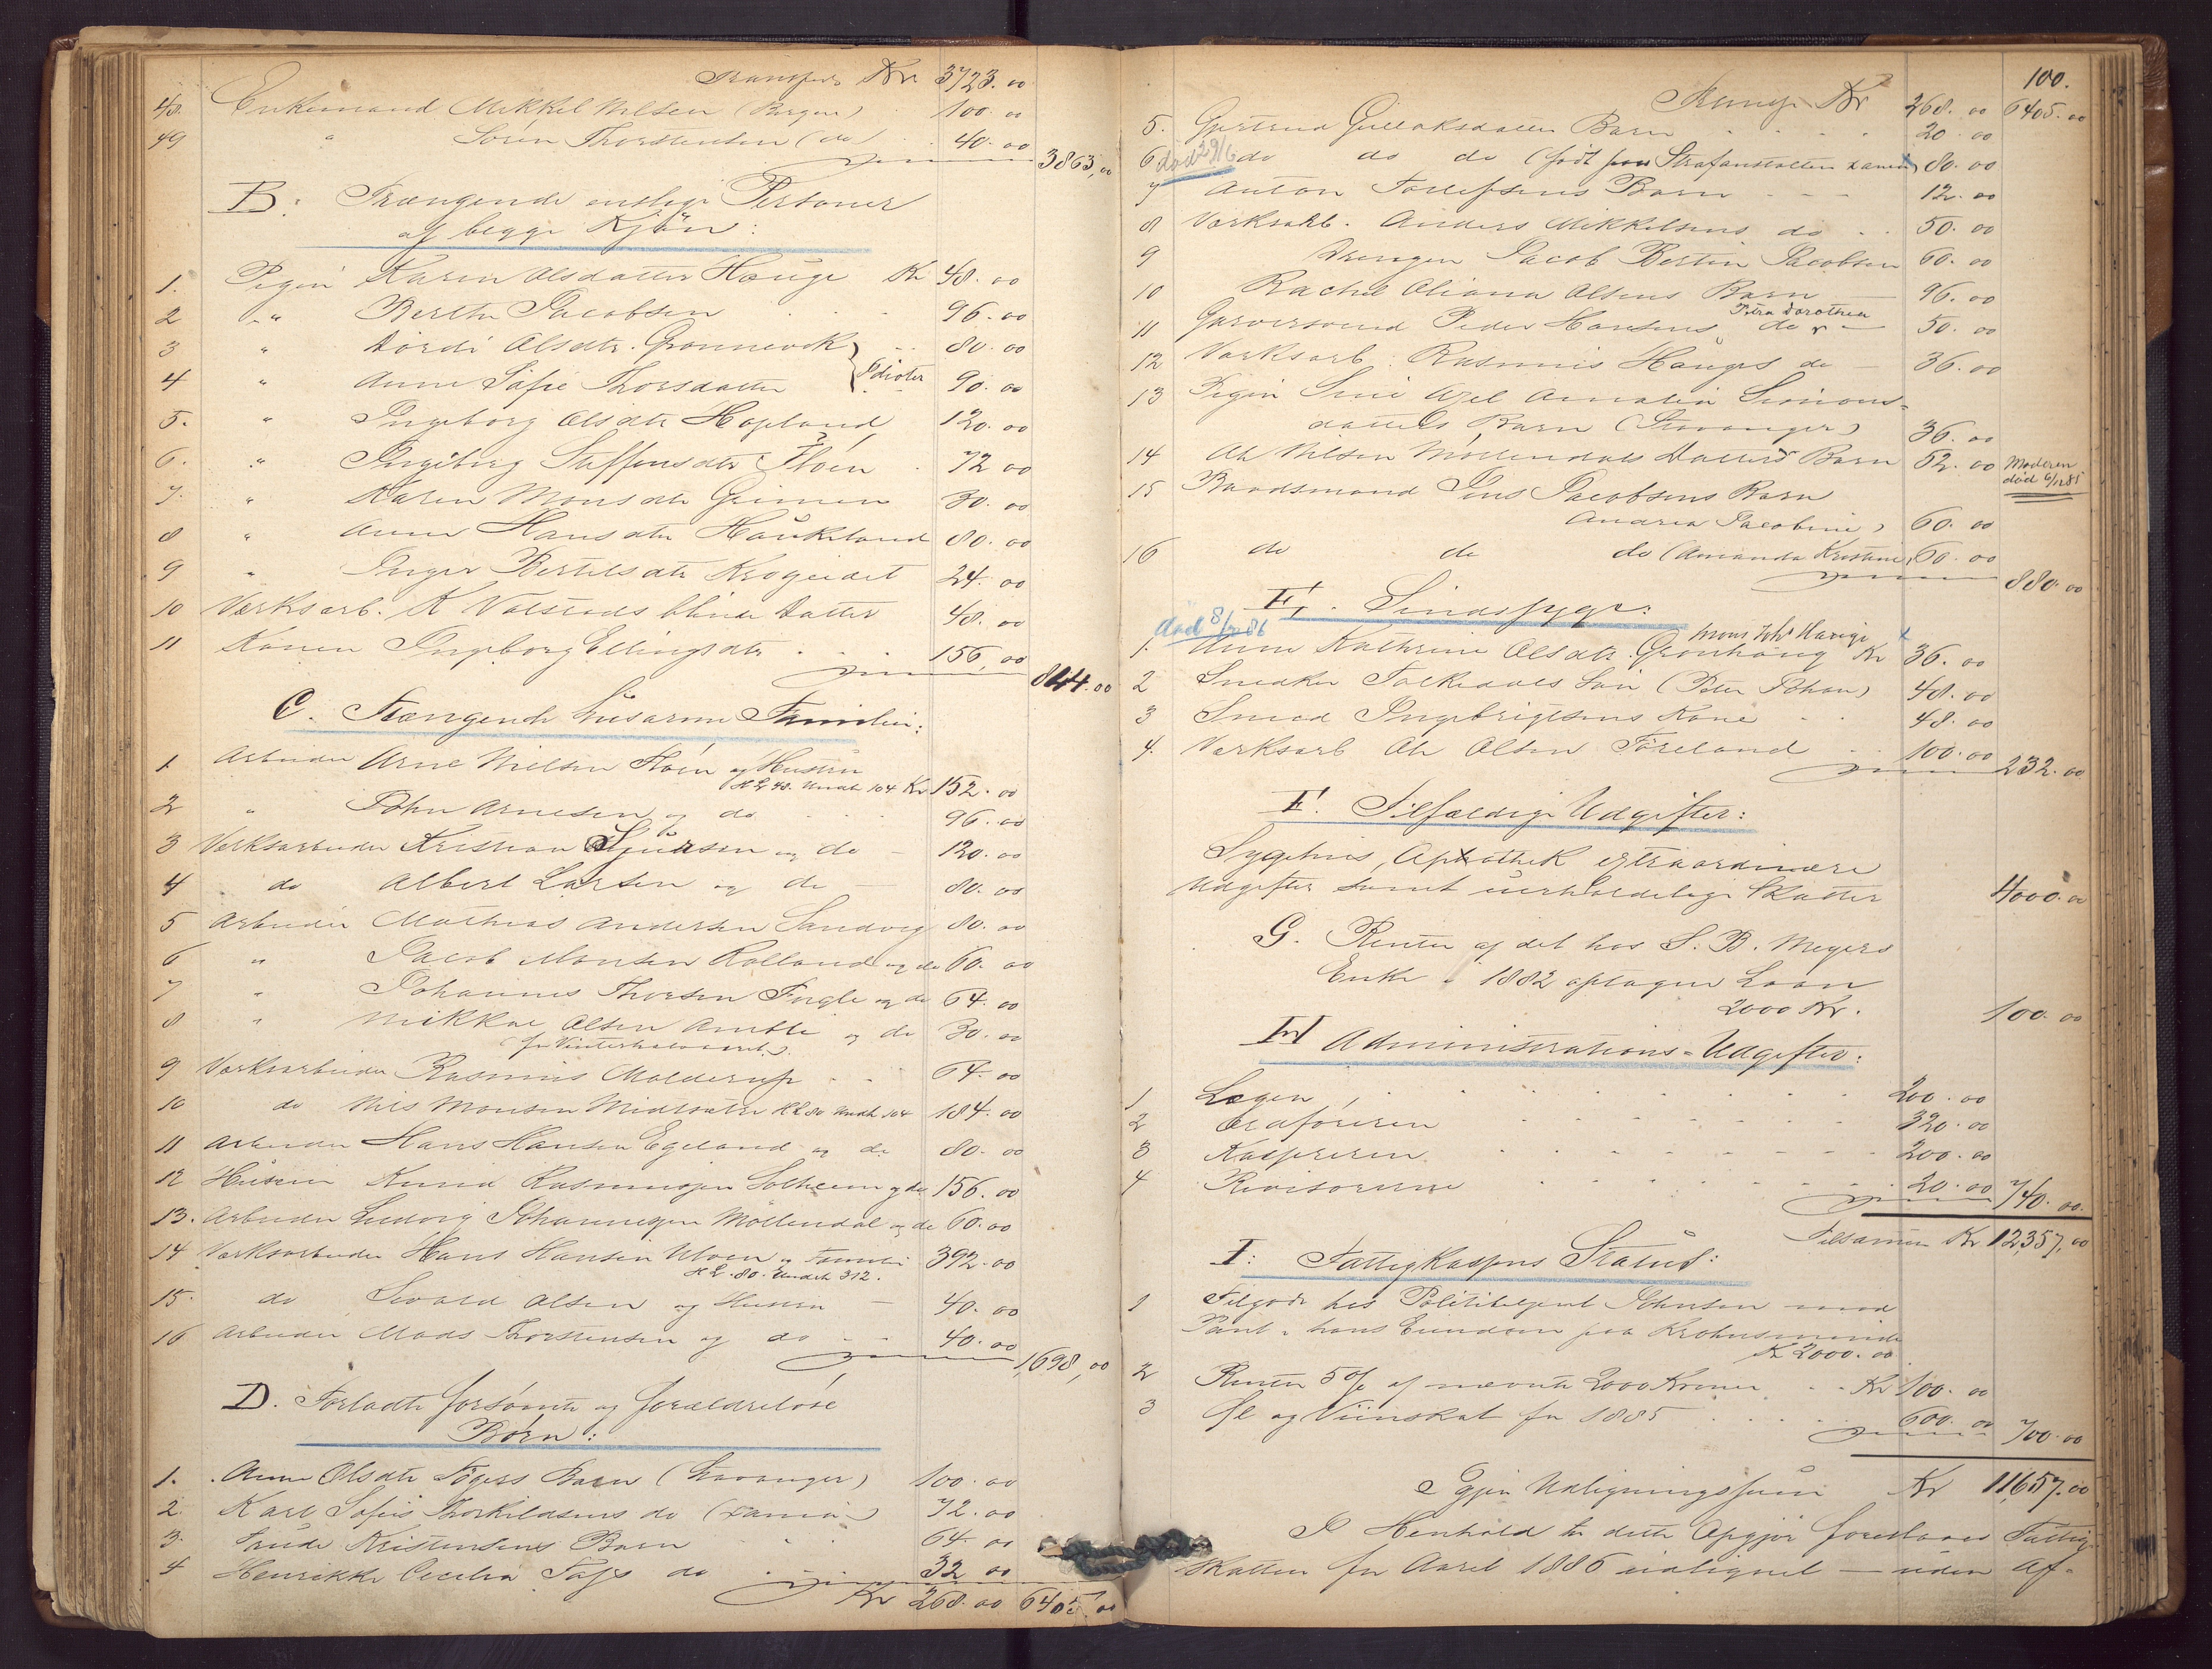 Transport Kr 3723.00
48. Enkemand Mikkel Nilsen (Bergen) 100.00
49 " Søren Thorstensen (do) 40.00
3863,00
B: Trængende enslige Personer
af begge Kjøn:
1. Pigen Karen Olsdatter Hauge Kr 48.00
2 " Berthe Jacobsen 96.00
3 " Dordi Olsdtr. 80.00
4 " Anne Sofie Thorsdatter Idioter 90.00
5. " Ingeborg Olsdtr Hopland 120.00
6. " Ingeborg Steffensdtr Fløen 72 00
7. " Karen Monsdtr Grimen 30.00
8 " Anne Hansdtr Haukeland 80.00
9 " Inger Bertelsdtr Krogeidet 24.00
10 Værksarb. K Valstads blinde Datter 48.00
11 Konen Ingeborg Ellingsdtr 156,00
844.00
C. Trængende husarme Familier:
1 Arbeider Arne Nielsen Fløen og Hustru
H L 48. Underh 104 Kr 152.00
2 " John Arnesen og do 96.00
3 Værksarbeider Kristian Sjursen og do 120.00
4 do Albert Larsen og do 80.00
5 Arbeider Mathias Andersen Sandvig 80.00
6 " Jacob Monsen Rolland og do 60.00
7 " Johannes Thorsen Fugle og do 64.00
8 " Mikkel Olsen og do 30.00
(for Vinterhalvaaret)
9 Værksarbeider Rasmus Molderup 64.00
10 do Nils Monsen Midtsæter H L 80 Underh 104 184.00
11 Arbeider Hans Hansen Egeland og do 80.00
12 Huseier Knud Rasmussen Solheim og do 156.00
13. Arbeider Ludvig Johannessen Møllendal og do 60.00
14 Værksarbeider Hans Hansen Ulven og Familie 392.00
H L. 80. Underh 312.
15. do Sivald Olsen og Hustru 40.00
16 Arbeider Mads Thorstensen og do 40.00
1,698,00
D. Forladte forsømte og forældreløse
Børn:
1. Anne Olsdtr Barn (Stavanger) 100.00
2. Karl Sofus Thorkildsens do 72.00
3. Kristensens Barn 64.00
4 Henrikke Cecilia do 32 00
Kr 268.00 6405.00
100.
Transp. Kr 268.00 6405.00
5. Gjertrud Gullaksdatters Barn 20 00
6 død 29/6 do do do (født paa Strafanstalten 80.00
7 Anton Tollefsens Barn 12.00
8 Værksarb. Anders Mikkelsens do 50.00
9 Drengen Jacob Bertin Jacobsen 60.00
10 Rachel Oliana Olsens Barn 96.00
Petra Dorothea
11 Garversvend Peder Hansens do 50.00
12 Værksarb. Rasmus Hauges do 36.00
13 Pigen Sine Amalia Simons=
datters Barn (Stavanger) 36.00
14 Ole Nilsen Møllendals Datters Barn 52.00 Moderen
død 6/12 85
15 Baadsmand Jens Jacobsens Barn
Andrea Jacobine) 60.00
16 do do do (Amanda Kristine) 60.00
880.00
E. Sindssyge:
død 8/ 86
Mons Joh Hauge
1. Anne Kathrine Olsdtr. Grønhaug Kr 36.00
2 Snedker Folkedals Søn (Peter Johan) 48.00
3 Smed Ingebrigtsens Kone 48.00
4. Værksarb Ole Olsen Føreland 100.00
232.00
F. Tilfældige Udgifter:
Sygehus, Apothek extraordinære
Udgifter samt uerholdelige Skatter 4000.00
G. Renter af det hos S. B. Meyers
Enke i 1882 optagne Laan
2000 Kr. 100.00
H Administrations=Udgifter:
1 Lægen 200.00
2 Ordføreren 320.00
3 Kassereren 200.00
4 Revisorerne 20.00
740.00.
Tilsammen Kr 12,357,00
I: Fattigkassens Status:
1 Tilgode hos Politibetjent Johnsen mod
Pant i hans Eiendom paa Krohnsminde
Kr 2000.00
2 Renter 5 % af nævnte 2000 Kroner Kr 100.00
3 Øl og Viinskat for 1885 600.00
700.00
Igjen Udligningssum Kr 11,657.00
I Henhold til dette Opgjør foreslaaes Fattig
skatten for Aaret 1886 udlignet — uden Af=